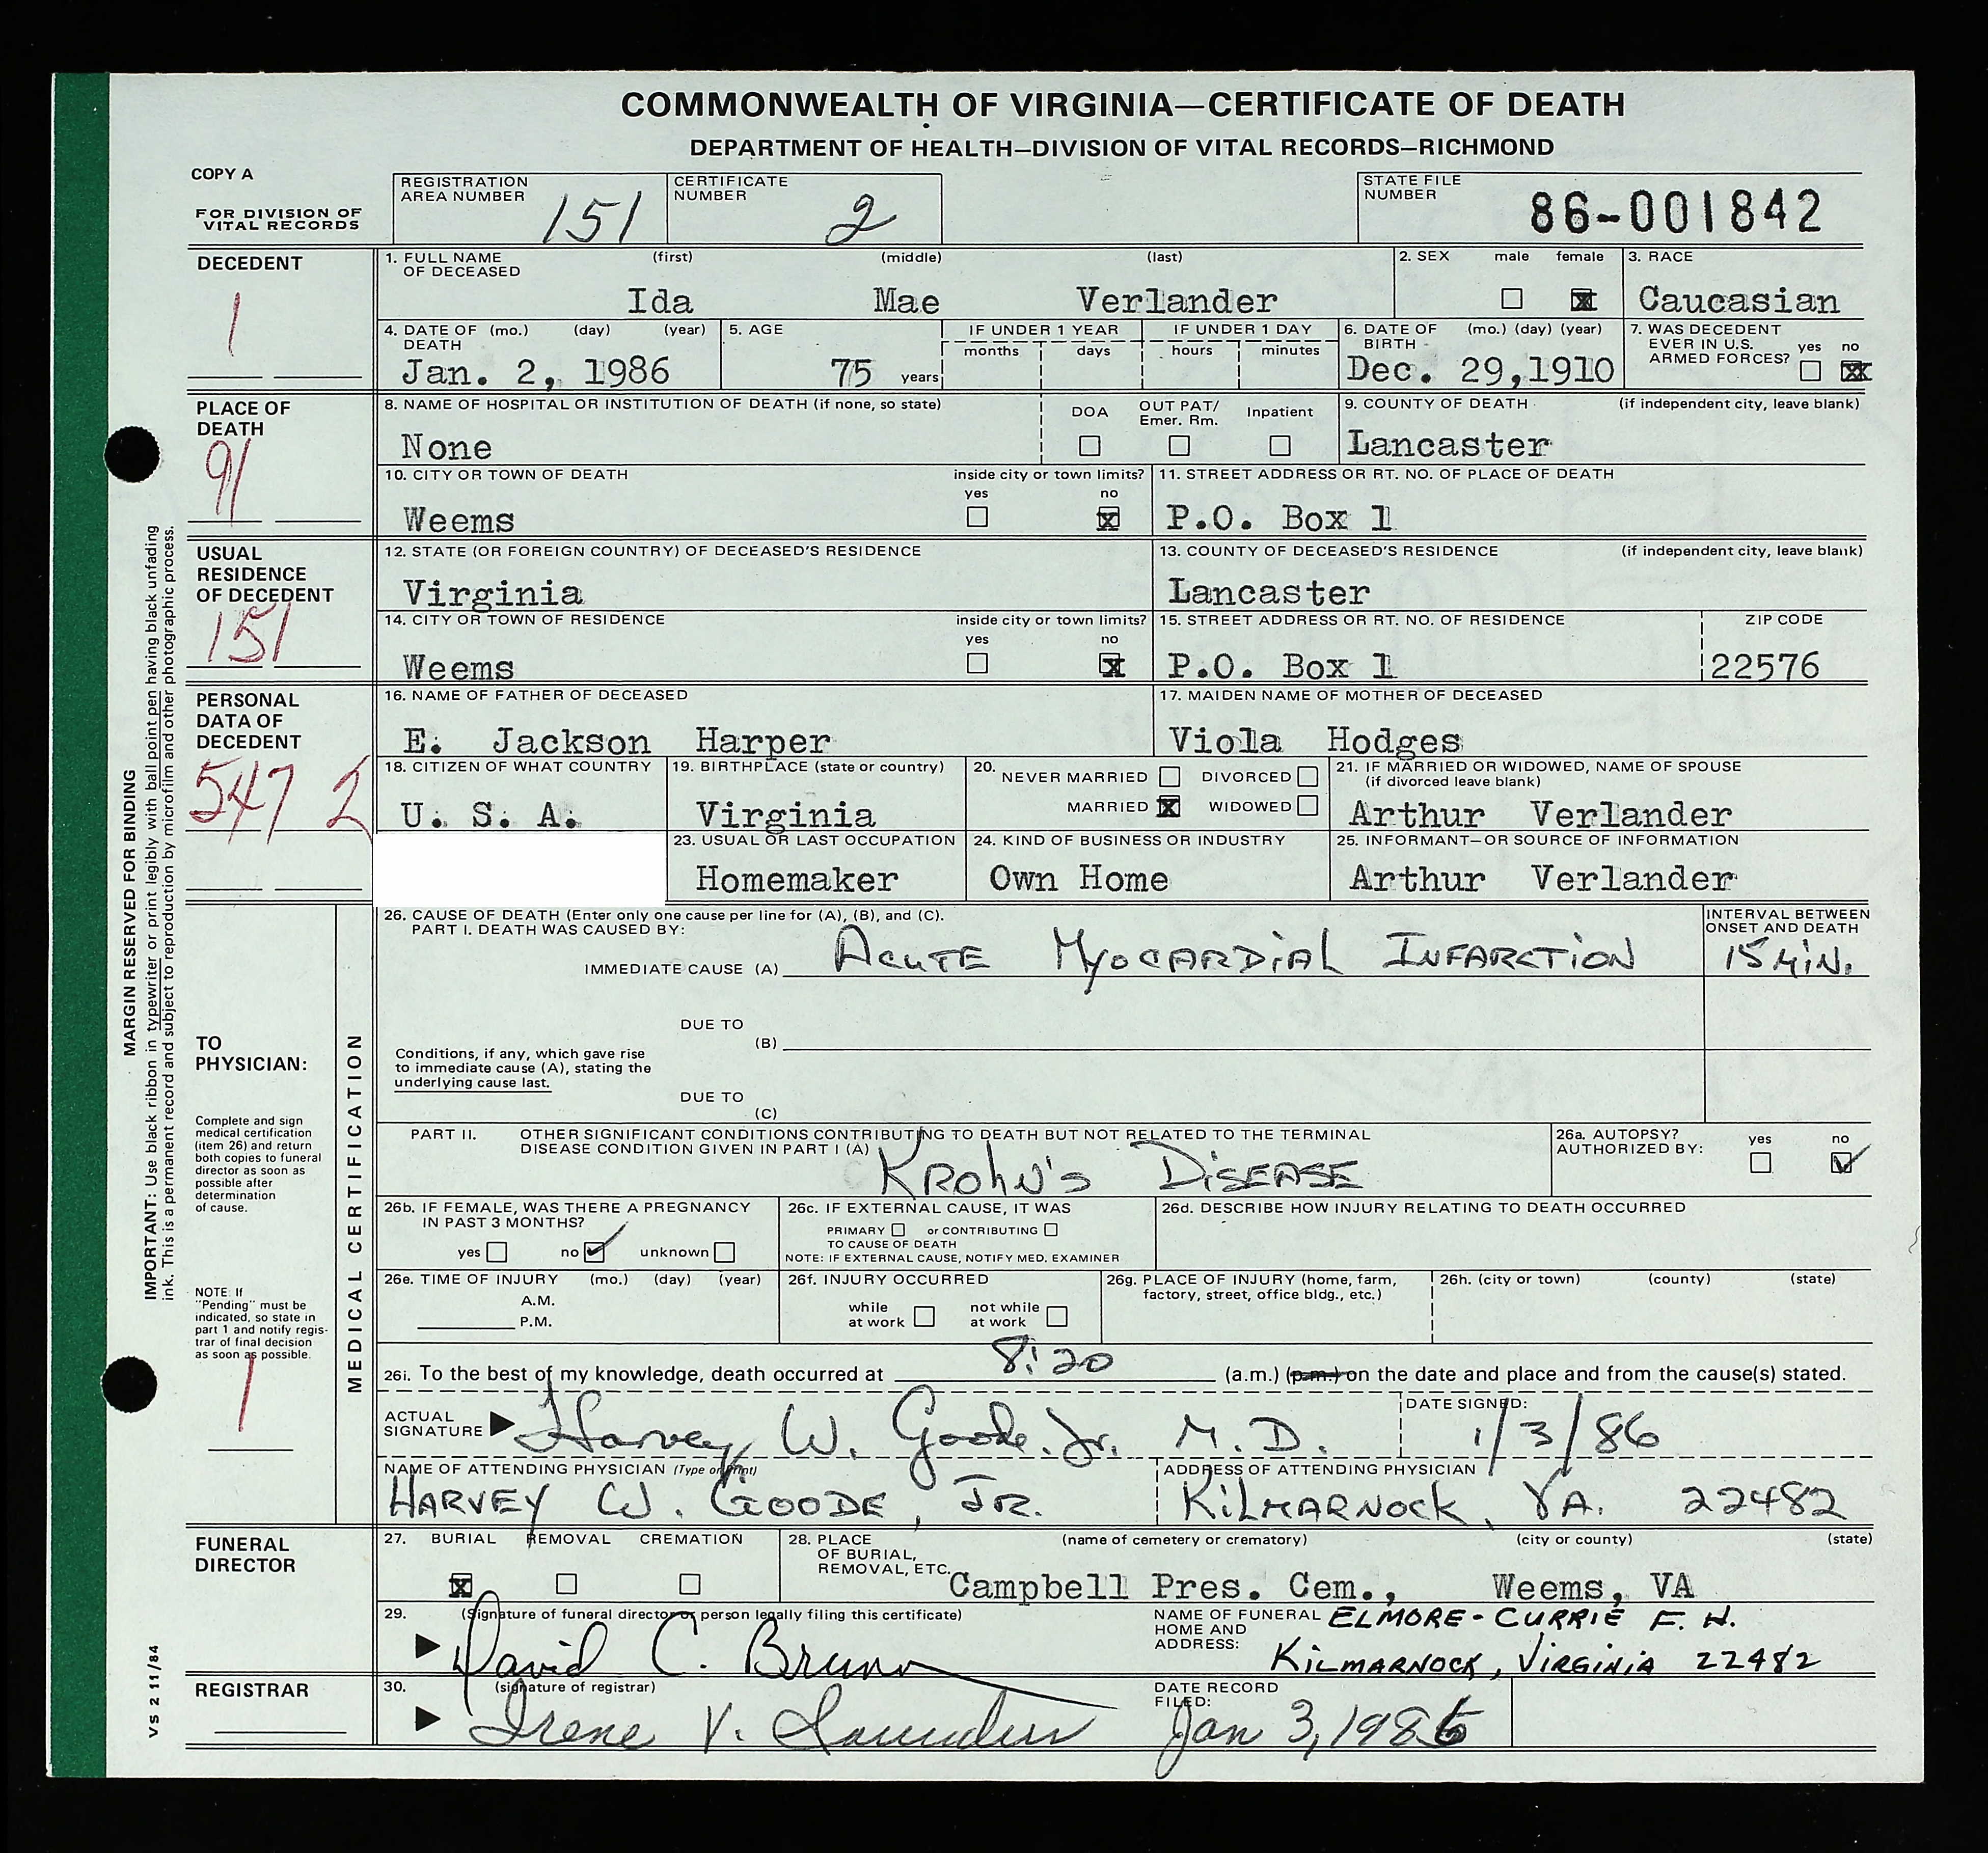 COMMONWEALTH OF VIRGINIA—CERTIFICATE OF DEATH
DEPARTMENT OF HEALTH—DIVISION OF VITAL RECORDS—RICHMOND
COPY A
FOR DIVISION OF VITAL RECORDS
REGISTRATION AREA NUMBER 151
CERTIFICATE NUMBER 2
STATE FILE NUMBER 86-001842
DECEDENT
1
1. FULL NAME OF DECEASED (first) (middle) (last)
Ida Mae Verlander
2. SEX male female
3. RACE
Caucasian
4. DATE OF DEATH (mo.) (day) (year)
Jan. 2, 1986
5. AGE
75 years
IF UNDER 1 YEAR
months days
IF UNDER 1 DAY
hours minutes
6. DATE OF BIRTH (mo.) (day) (year)
Dec. 29,1910
7. WAS DECEDENT EVER IN U.S. ARMED FORCES? yes no
PLACE OF DEATH
91
8. NAME OF HOSPITAL OR INSTITUTION OF DEATH (if none, so state)
None
DOA OUT PAT/ Emer. Rm. Inpatient
9. COUNTY OF DEATH (if independent city, leave blank)
Lancaster
10. CITY OR TOWN OF DEATH inside city or town limits? yes no
Weems
11. STREET ADDRESS OR RT. NO. OF PLACE OF DEATH
P.O. Box 1
USUAL RESIDENCE OF DECEDENT
151
12. STATE (OR FOREIGN COUNTRY) OF DECEASED'S RESIDENCE
Virginia
13. COUNTY OF DECEASED'S RESIDENCE (if independent city, leave blank)
Lancaster
14. CITY OR TOWN OF RESIDENCE inside city or town limits? yes no
Weems
15. STREET ADDRESS OR RT. NO. OF RESIDENCE
P.O. Box 1
ZIP CODE
22576
PERSONAL DATA OF DECEDENT
547 2
16. NAME OF FATHER OF DECEASED
E. Jackson Harper
17. MAIDEN NAME OF MOTHER OF DECEASED
Viola Hodges
18. CITIZEN OF WHAT COUNTRY
U. S. A.
19. BIRTHPLACE (state or country)
Virginia
20. NEVER MARRIED DIVORCED
MARRIED WIDOWED
21. IF MARRIED OR WIDOWED, NAME OF SPOUSE
(if divorced leave blank)
Arthur Verlander
23. USUAL OR LAST OCCUPATION
Homemaker
24. KIND OF BUSINESS OR INDUSTRY
Own Home
25. INFORMANT—OR SOURCE OF INFORMATION
Arthur Verlander
MARGIN RESERVED FOR BINDING
IMPORTANT: Use black ribbon in typewriter or print legibly with ball point pen having black unfading
ink. This is a permanent record and subject to reproduction by microfilm and other photographic process.
TO PHYSICIAN:
Complete and sign
medical certification
(item 26) and return
both copies to funeral
director as soon as
possible after
determination
of cause.
NOTE: If
"Pending" must be
indicated, so state in
part 1 and notify regis-
trar of final decision
as soon as possible.
1
MEDICAL CERTIFICATION
26. CAUSE OF DEATH (Enter only one cause per line for (A), (B), and (C).
PART I. DEATH WAS CAUSED BY:
INTERVAL BETWEEN ONSET AND DEATH
IMMEDIATE CAUSE (A) ACUTE MYOCARDIAL INFARCTION 15 MIN.
DUE TO
(B)
Conditions, if any, which gave rise
to immediate cause (A), stating the
underlying cause last.
DUE TO
(C)
PART II. OTHER SIGNIFICANT CONDITIONS CONTRIBUTING TO DEATH BUT NOT RELATED TO THE TERMINAL
DISEASE CONDITION GIVEN IN PART I (A)
KROHN'S DISEASE
26a. AUTOPSY? AUTHORIZED BY: yes no
26b. IF FEMALE, WAS THERE A PREGNANCY
IN PAST 3 MONTHS?
yes no unknown
26c. IF EXTERNAL CAUSE, IT WAS
PRIMARY or CONTRIBUTING
TO CAUSE OF DEATH
NOTE: IF EXTERNAL CAUSE, NOTIFY MED. EXAMINER
26d. DESCRIBE HOW INJURY RELATING TO DEATH OCCURRED
26e. TIME OF INJURY (mo.) (day) (year)
A.M.
P.M.
26f. INJURY OCCURRED
while at work not while at work
26g. PLACE OF INJURY (home, farm,
factory, street, office bldg., etc.)
26h. (city or town) (county) (state)
26i. To the best of my knowledge, death occurred at 8:20 (a.m.) (p.m.) on the date and place and from the cause(s) stated.
ACTUAL SIGNATURE Harvey W. Goode. Jr. M.D.
DATE SIGNED: 1/3/86
NAME OF ATTENDING PHYSICIAN (Type or Print)
HARVEY W. GOODE, JR.
ADDRESS OF ATTENDING PHYSICIAN
KILMARNOCK, VA. 22482
FUNERAL DIRECTOR
27. BURIAL REMOVAL CREMATION
28. PLACE OF BURIAL, REMOVAL, ETC. (name of cemetery or crematory) (city or county) (state)
Campbell Pres. Cem., Weems, VA
29. (Signature of funeral director or person legally filing this certificate)
David C.
NAME OF FUNERAL HOME AND ADDRESS: ELMORE-CURRIE F. H.
KILMARNOCK, VIRGINIA 22482
REGISTRAR
30. (signature of registrar)
Irene V. Saunders
DATE RECORD FILED: Jan 3, 1986
VS 2 11/84